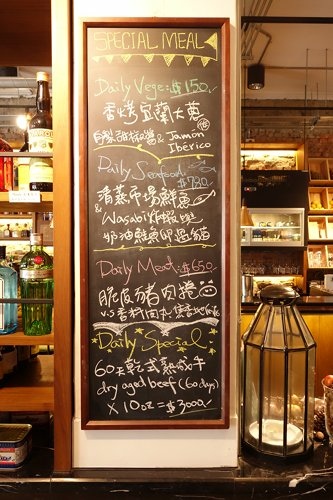 SPECIAL MEAL
Daily Vege: $150
香烤宜蘭大蔥
自製甜椒醬 & Jamón
Iberico
Daily Seafood
$780
清蒸市場鮮魚
& Wasabi炸蝦與
奶油鮭魚卵
Daily Meat: $650
脆皮豬肉捲
V.S 香料肉丸
Daily Special
60天乾式熟成牛
dry aged beef (60 days)
X 10oz = $3000